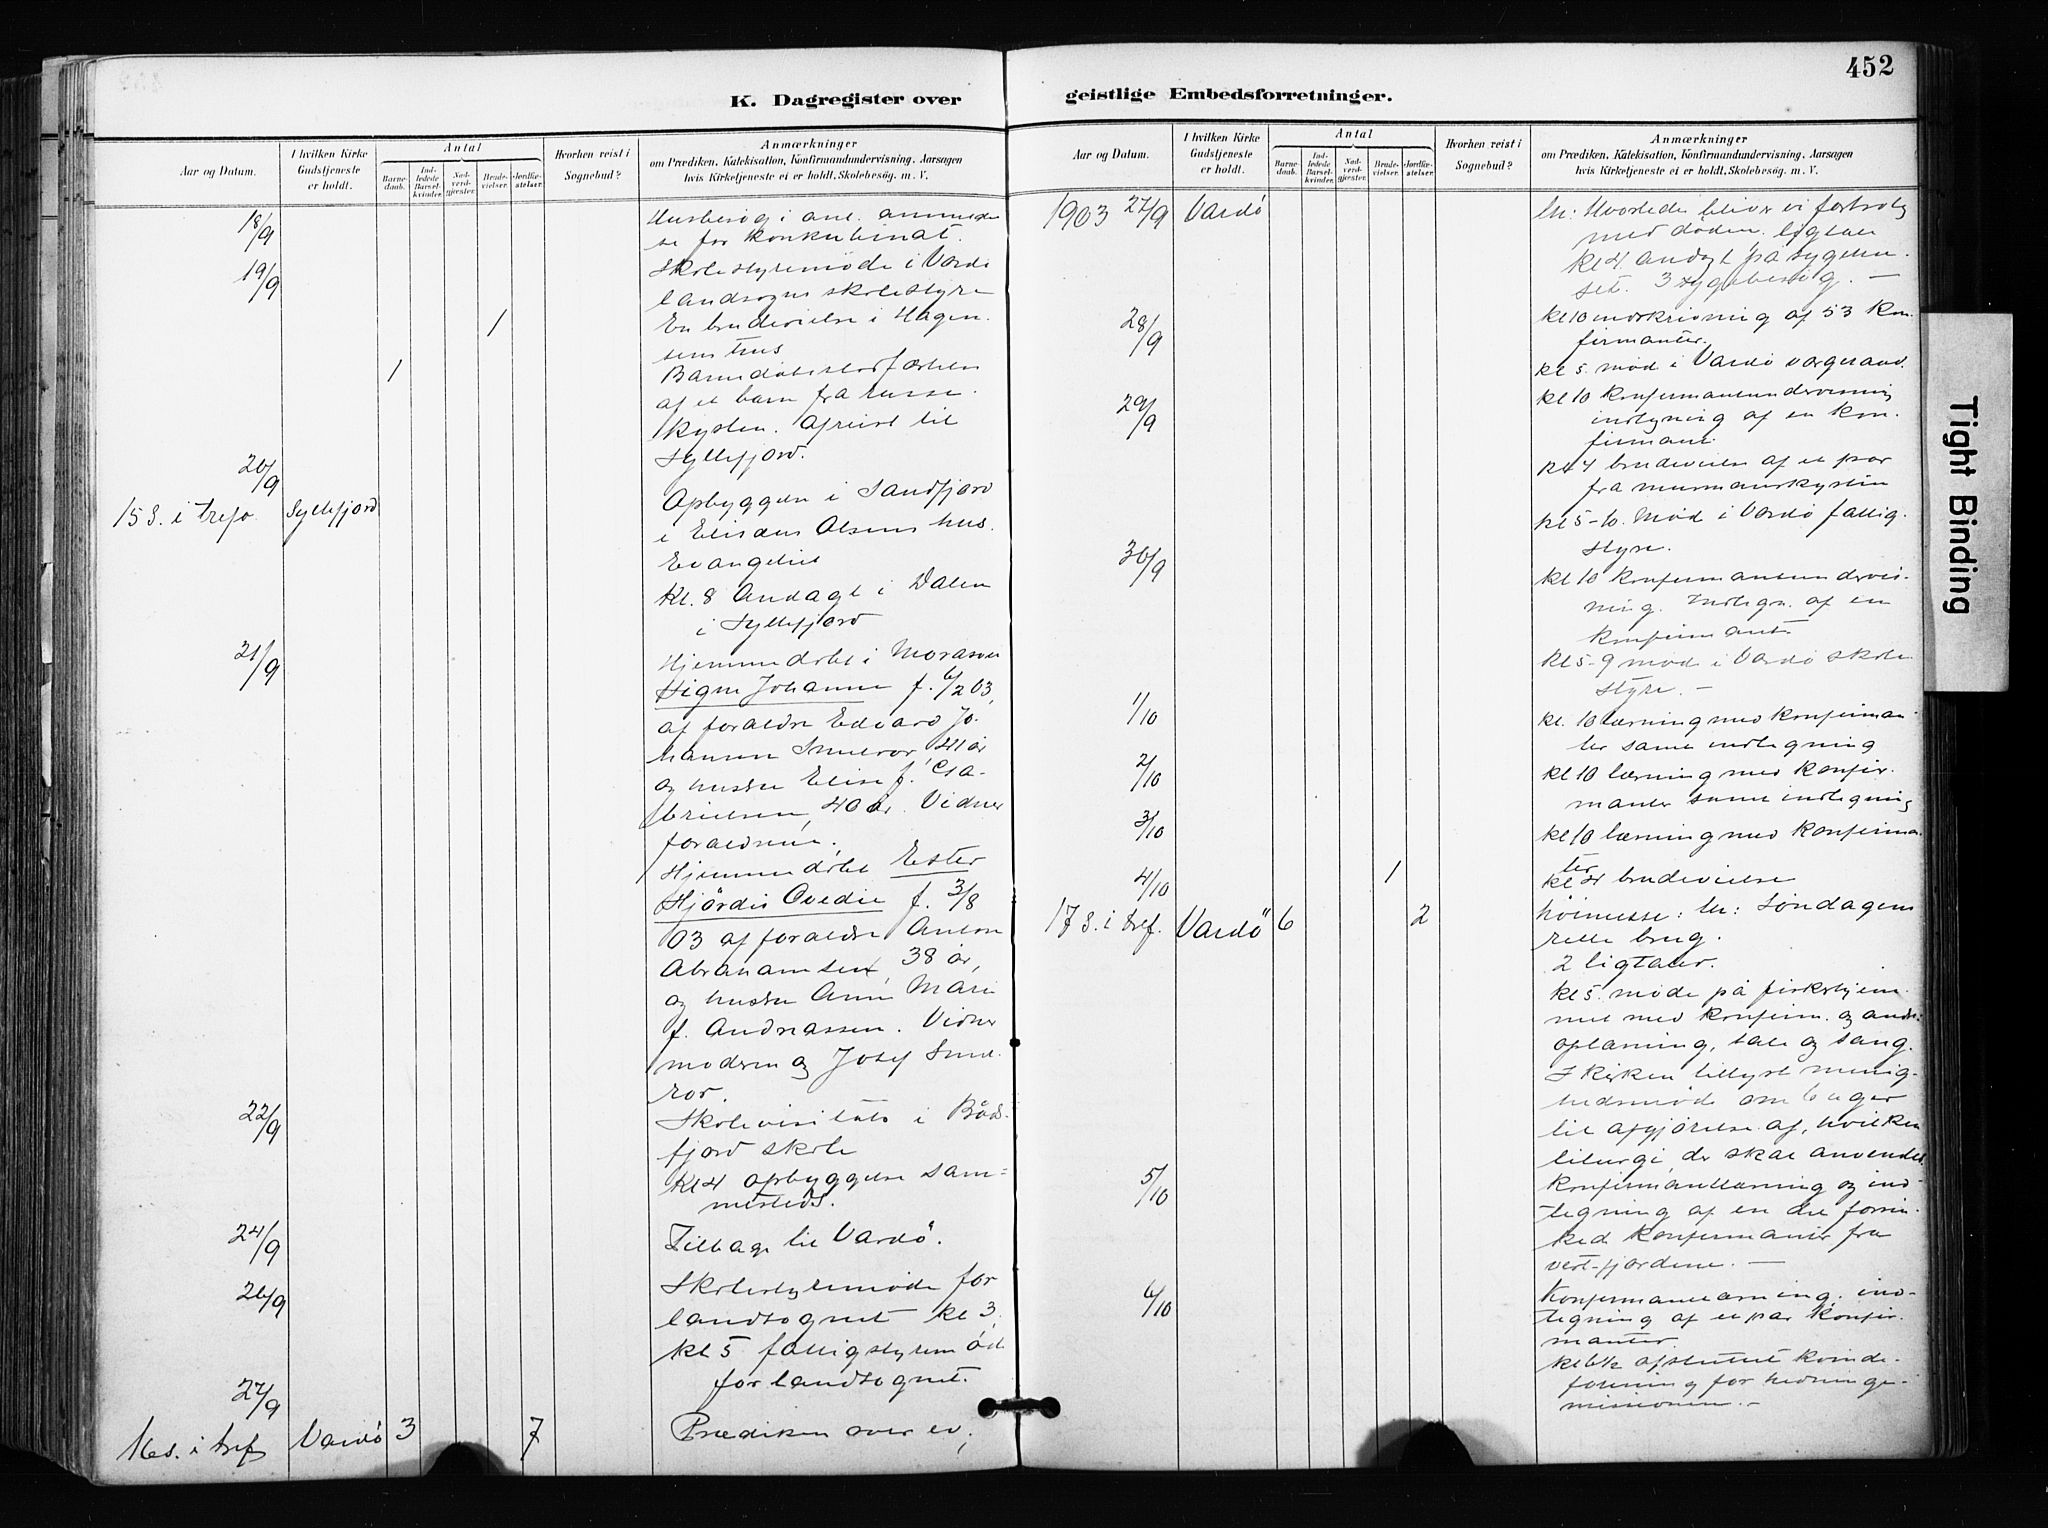 K. Dagregister over
Aar og Datum.
I hvilken Kirke Gudstjeneste er holdt.
Antal
Barnedaab.
Indledede Barselkvinder.
Nadverdgjester.
Brudevielser.
Jordfæstelser.
Hvorhen reist i Sognebud?
Anmærkninger
om Prædiken, Katekisation, Konfirmandundervisning, Aarsagen
hvis Kirketjeneste ei er holdt, Skolebesøg. m. V.
18/9 Husbesøg i anl. anmeldel
se for konkubinat.
19/9 Skolestyremøde i Vardø
landsogns skolestyre
1 En brudevielse i Hagen
sens hus
1 Barnedåbsstadfæstelse
af et barn fra russe
kysten. Afreist til
Syltefjord.
20/9
15 S. i tref. Syltefjord Opbyggelse i Sandfjord
i Elisæus Olsens hus.
Evangeliet
kl. 8 Andagt i Dalen
i Syltefjord
21/9 Hjemmedøbt i
Signe Johanne f. 6/2 03,
af forældre Edvard Jo-
hansen Smelror, 41 år
og hustru Elise f. Ga-
brielsen, 40 år. Vidner
forældrene.
Hjemmedøbt Ester
Hjørdis Ovedie f. 3/8
03 af forældre Anton
Abrahamsen, 38 år,
og hustru Anne Marie
f. Andreassen. Vidner
moderen og Josef Smel-
ror.
22/9 Skolevisitats i Båds-
fjord skole
kl 4 opbyggelse sam-
mesteds.
24/9 Tilbage til Vardø.
26/9 Skolestyremøde for
landsognet kl 3.
kl 5 fattigstyremød
for landsognet.
27/9
16 s. i tref Vardø 3 7 Prædiken over ev,
452
geistlige Embedsforretninger.
Aar og Datum.
I hvilken Kirke Gudstjeneste er holdt.
Antal
Barnedaab.
Indledede Barselkvinder.
Nadverdgjester.
Brudevielser.
Jordfæstelser.
Hvorhen reist i Sognebud?
Anmærkninger
om Prædiken, Katekisation, Konfirmandundervisning, Aarsagen
hvis Kirketjeneste ei er holdt, Skolebesøg. m. V.
1903 27/9 Vardø th: Hvorledes bliver vi fortrolig
med døden. ligtale
kl 4. andagt på sygehu-
set. 3 sygebesøg. —
28/9 kl 10 indskrivning af 53 kon-
firmanter.
kl 5. mød i Vardø værgeraad.
29/9 kl 10 konfirmantundervisning
indtegning af en kon-
firmant.
kl 4 brudevielse af et par
fra murmanskysten
kl 5-10. Mød i Vardø fattig-
styre.
30/9 kl 10 konfirmantundervis-
ning. Indtegn. af en
konfirmant.
kl 5-9 mød i Vardø skole
styre. —
1/10 kl. 10 læsning med konfirman-
ter samt indtegning
2/10 kl 10 læsning med konfir-
manter samt indtegning
3/10 kl 10 læsning med konfirman
ter
4/10 1 kl 4 brudevielse
17 S. i tref. Vardø 6 2 høimesse: th: Søndagens
rette brug.
2 ligtaler.
kl 5. møde på fiskerhjem-
met med konfirm. og andre:
oplæsning, tale og sang.
I kirken tillyst menig-
hedsmøde om 6 uger
til afgjørelse af, hvilken
liturgi, der skal anvendes.
5/10 konfirmantlæsning og ind-
tegning af en del forsin-
ked konfirmanter fra
vest-fjordene. —
6/10 konfirmantlæsning. ind-
tegning af et par konfir-
manter.
kl 6½ afsluttet kvinde-
forening for hedninge-
missionen. —
Tight Binding